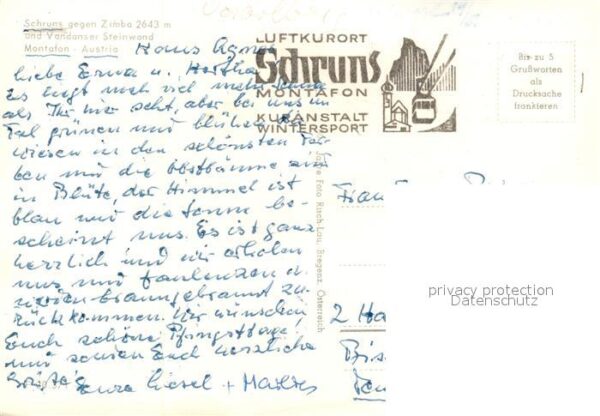 Schruns gegen Zimba 2643 m
und Vandanser Steinwand
Montafon - Austria
Haus Agnes
Liebe Erna u. Hertha
Es liegt noch viel mehr
als Ihr hier seht, aber bei uns im
Tal grünen und blühen die
Wiesen in den schönsten Far-
ben und die Obstbäume sind
in Blüte, der Himmel ist
blau und die Sonne be-
scheint uns. Es ist ganz
herrlich und wir erholen
uns und faulenzen u.
werden braungebrannt zu-
rückkommen. Wir wünschen
Euch schöne Pfingsttage,
und senden Euch herzliche
Grüße
Eure Liesel +
LUFTKURORT
Schruns
MONTAFON
KURANSTALT
WINTERSPORT
Bis zu 5
Grußworten
als
Drucksache
frankieren
Foto Risch-Lau, Bregenz, Österreich
privacy protection
Datenschutz
2 Ha